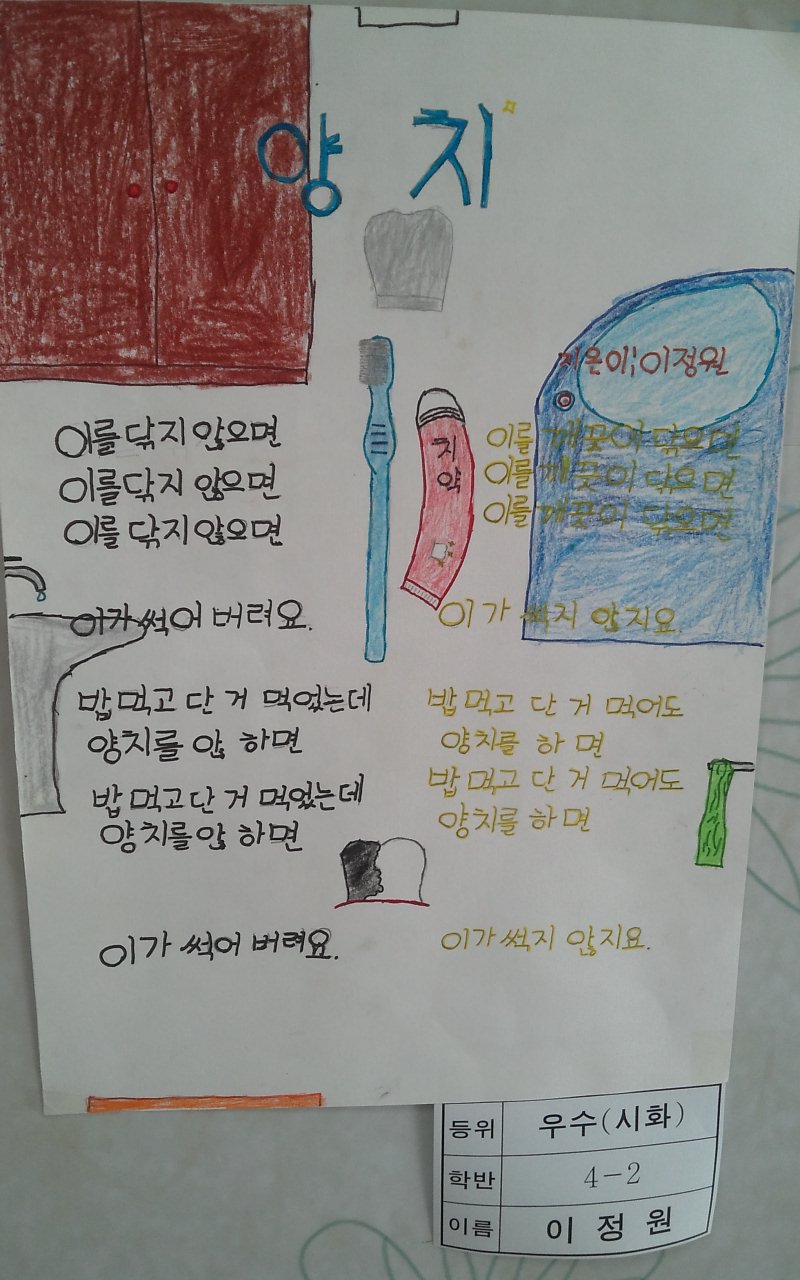 양치
지은이:이정원
치약
이를 닦지 않으면
이를 닦지 않으면
이를 닦지 않으면
이가 썩어 버려요.
밥 먹고 단 거 먹었는데
양치를 안 하면
밥 먹고 단 거 먹었는데
양치를 안 하면
이가 썩어 버려요.
이를 깨끗이 닦으면
이를 깨끗이 닦으면
이를 깨끗이 닦으면
이가 썩지 않지요.
밥 먹고 단 거 먹어도
양치를 하면
밥 먹고 단 거 먹어도
양치를 하면
이가 썩지 않지요.
등위 우수(시화)
학반 4-2
이름 이정원